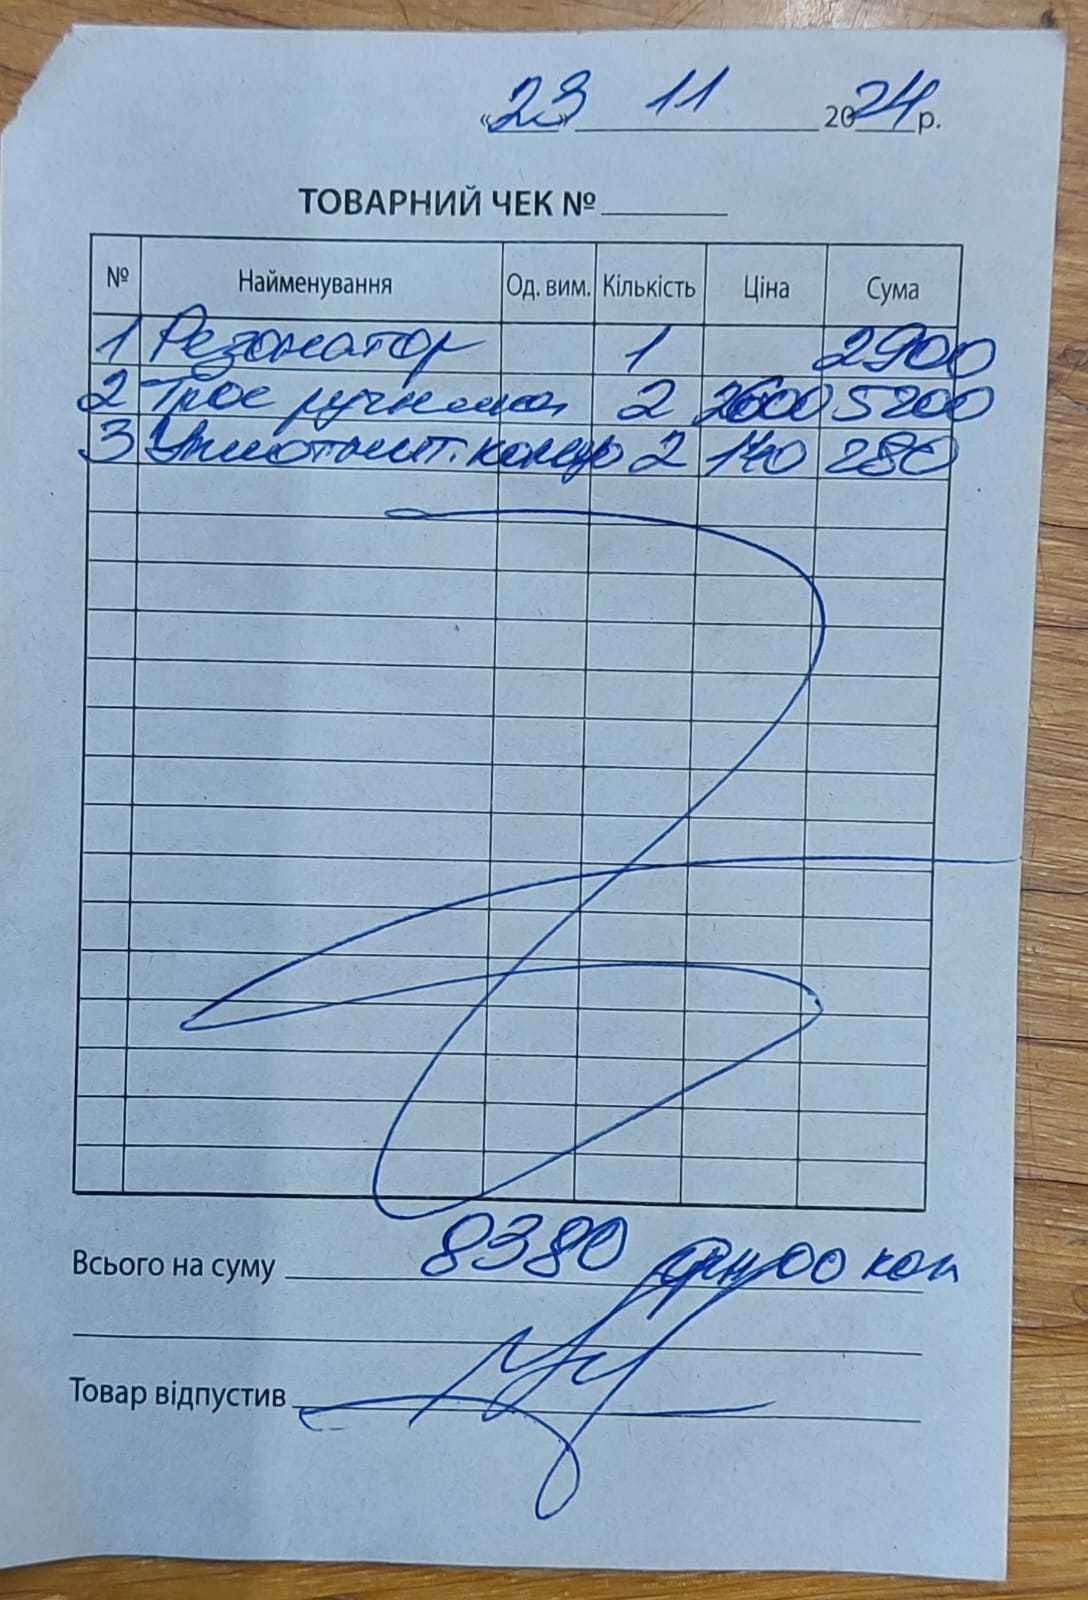 «23» 11 2024 р.
ТОВАРНИЙ ЧЕК №
№ Найменування Од. вим. Кількість Ціна Сума
1 Резонатор 1 2900
2 Трос ручника 2 2600 5200
3 Уплотнит. кольцо 2 140 280
Всього на суму 8380 грн 00 коп
Товар відпустив